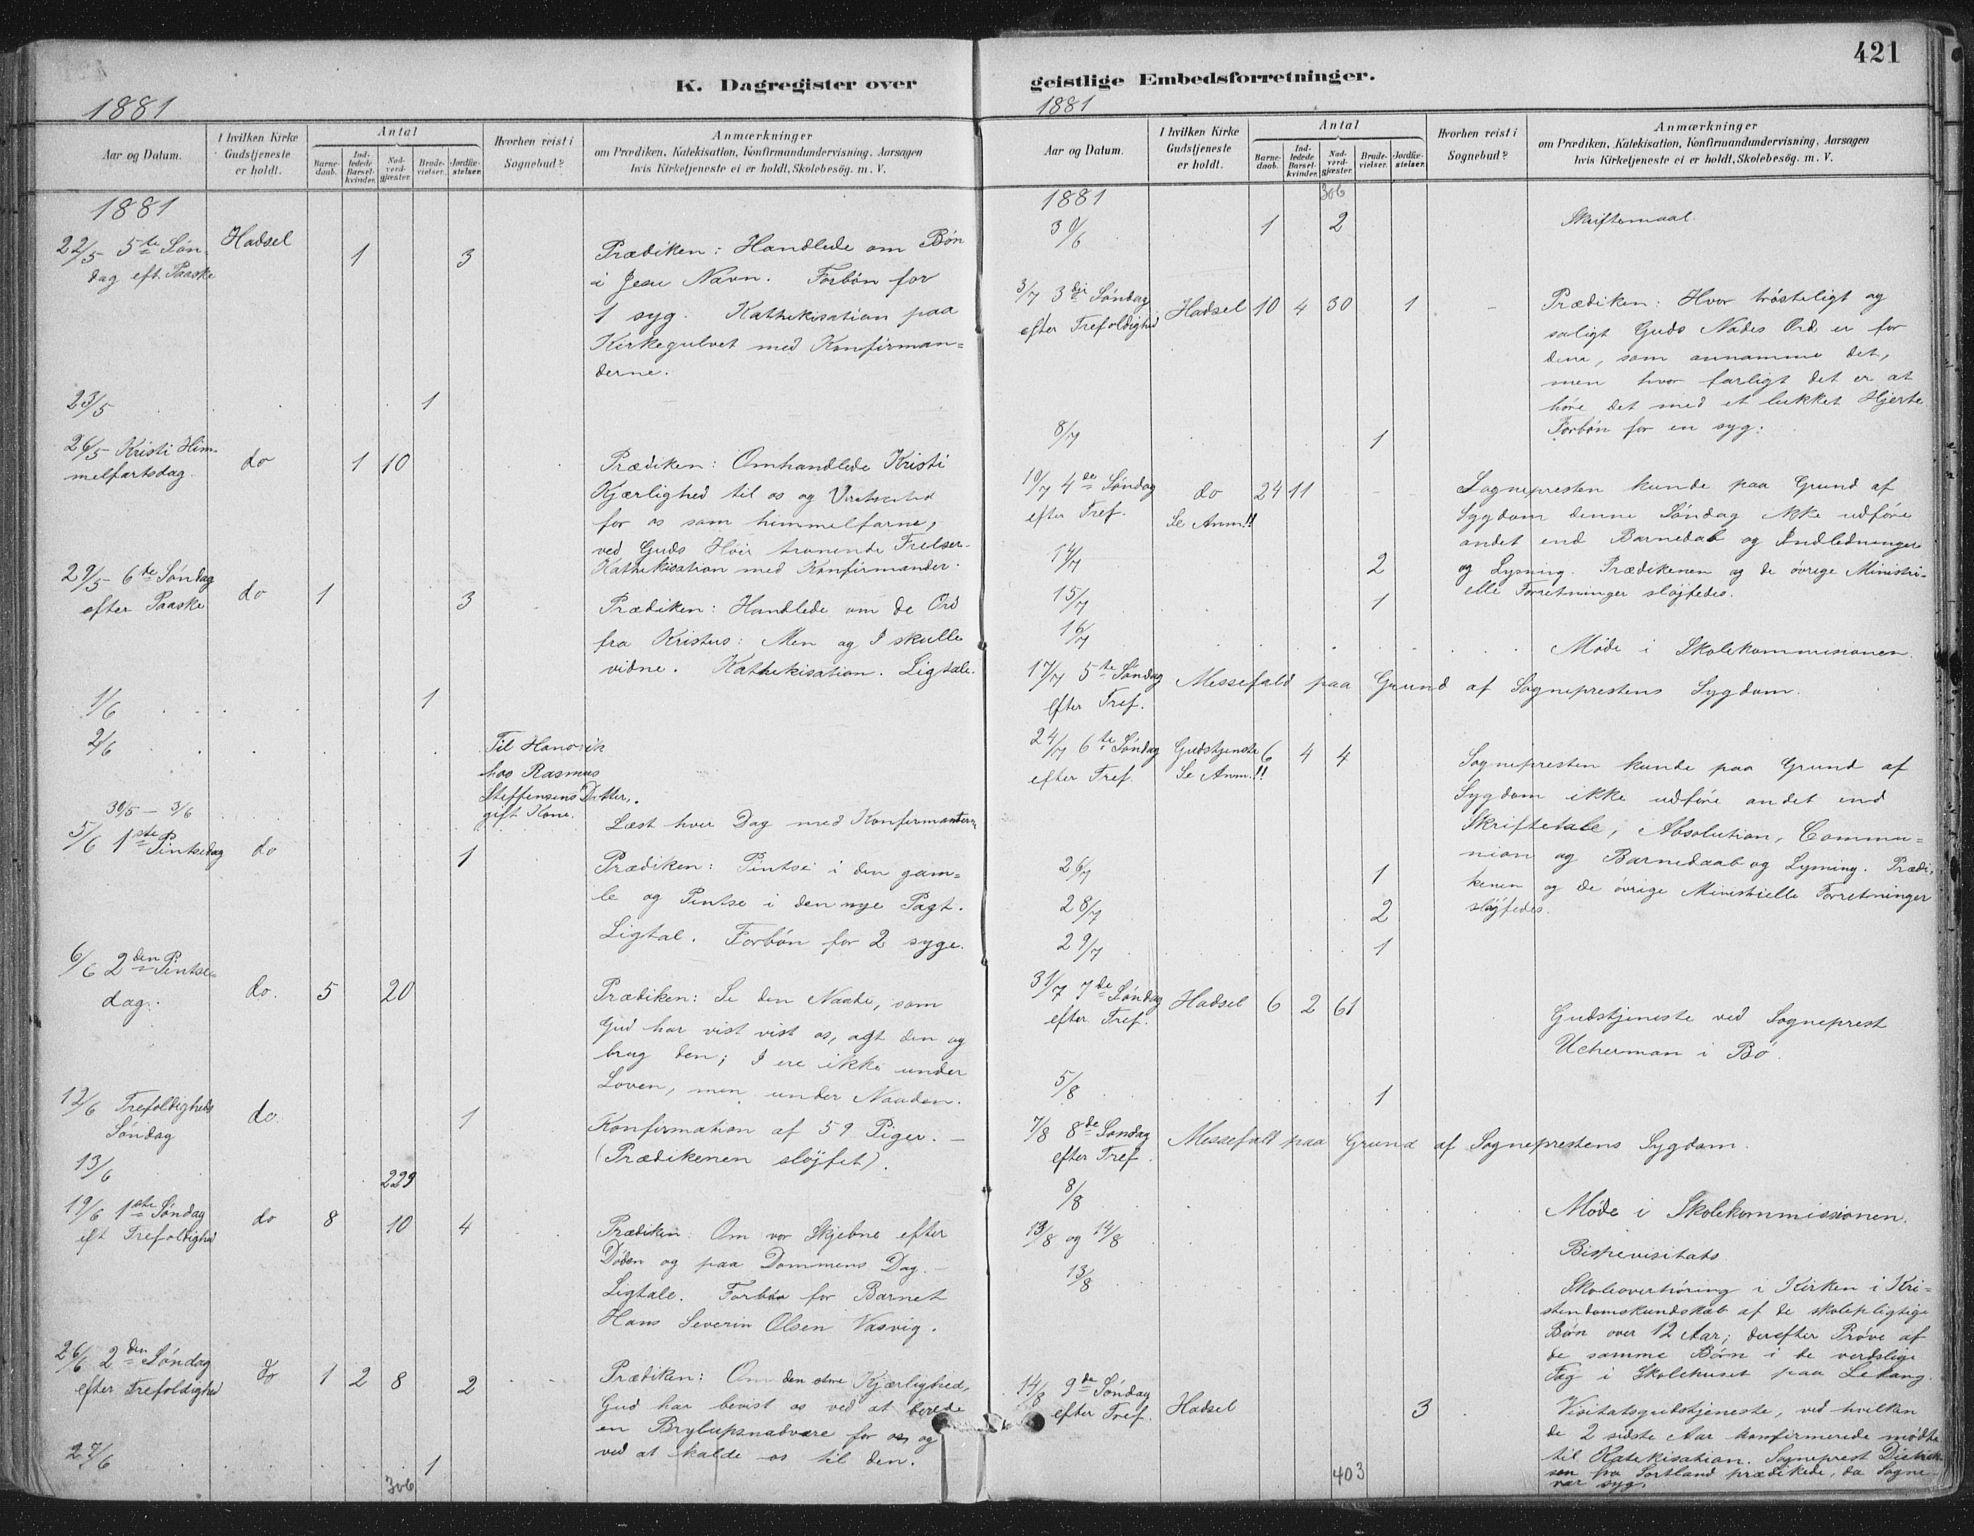 K. Dagregister over
1881
Aar og Datum.
I hvilken Kirke Gudstjeneste er holdt.
Antal
Barnedaab.
Indledede Barselkvinder.
Nadverdgjæster.
Brudevielser.
Jordfæstelser.
Hvorhen reist i Sognebud?
Anmærkninger
om Prædiken, Katekisation, Konfirmandundervisning, Aarsagen
hvis Kirketjeneste ei er holdt, Skolebesøg. m. V.
1881
22/5 5te Søn Hadsel 1 3 Prædiken: Handlede om Bøn
dag eft. Paaske i Jesu Navn. Forbøn for
1 syg. Kathekisation paa
Kirkegulvet med Konfirman=
derne.
23/5 1
26/5 Kristi Him= do 1 10 Prædiken: Omhandlede Kristi
melfartsdag. Kjærlighed til os og
for os som himmelfarne,
ved Guds Høir tronende Frelser.
Kathekisation med Konfirmander.
29/5 6te Søndag do 1 3 Prædiken: Handlede om de Ord
efter Paaske. fra Kristus: Men og I skulle
vidne. Kathekisation. Ligtale.
1/6 1
2/6 Til
hos Rasmus
Steffensens Datter,
gift Kone.
30/5 – 3/6 Læst hver Dag med Konfirmanterne
5/6 1ste Pintsedag do 1 Prædiken: Pintse i den gam=
le og Pintse i den nye Pagt.
Ligtal. Forbøn for 2 syge.
6/6 2den Pintse= do. 5 20 Prædiken: Se den Naade, som
dag. Gud har vist vist os, agt den og
brug den; I ere ikke under
Loven, men under Naaden.
12/6 Trefoldigheds do. 1 Konfirmation af 59 Piger. –
Søndag (Prædikenen sløjfet).
13/6 229
19/6 1ste Søndag do 8 10 4 Prædiken: Om vor Skjebne efter
eft Trefoldighed Døden og paa Dommens Dag. –
Ligtale. Forbøn for Barnet
Hans Severin Olsen Vasvig.
26/6 2den Søndag do 1 2 8 2 Prædiken: Om den store Kjærlighed,
efter Trefoldighed Gud har bevist os ved at berede
en Bryllupsnadvare for os, og
ved at kalde os til den.
27/6 1
306
421
geistlige Embedsforretninger.
1881
Aar og Datum.
I hvilken Kirke Gudstjeneste er holdt.
Antal
Barnedaab.
Indledede Barselkvinder.
Nadverdgjæster.
Brudevielser.
Jordfæstelser.
Hvorhen reist i Sognebud?
Anmærkninger
om Prædiken, Katekisation, Konfirmandundervisning, Aarsagen
hvis Kirketjeneste ei er holdt, Skolebesøg. m. V.
1881 306
30/6 1 2 Skriftemaal.
3/7 3dje Søndag Hadsel 10 4 30 1 – Prædiken: Hvor trøsteligt og
efter Trefoldighed saligt Guds Nades Ord er for
dene, som annamme det,
men hvor farligt det er at
høre det med et lukket Hjerte
Forbøn for en syg.
8/7 1
10/7 4de Søndag do 24 11 Sognepresten kunde paa Grund af
efter Tref. Se Anm!! Sygdom denne Søndag ikke udføre
andet end Barnedab og Indledninger
og Lysning. Prædikenen og de øvrige Ministri=
elle Forretninger sløjfedes.
14/7 2
15/7 1
16/7 Møde i Skolekommisionen.
17/7 5te Søndag Messefald paa Grund af Sogneprestens Sygdom.
efter Tref.
24/7 6te Søndag Gudstjeneste 6 4 4 Sognepresten kunde paa Grund af
efter Tref. Se Anm.!! Sygdom ikke udføre andet end
Skriftetale, Absolution, Commu=
nion og Barnedaab og Lysning. Prædi=
kenen og de øvrige Ministrielle Forretninger
sløjfedes.
26/7 1
28/7 2
29/7 1
31/7 7de Søndag Hadsel 6 2 61 Gudstjeneste ved Sogneprest
efter Tref. Ucherman i Bø.
5/8 1
7/8 8de Søndag Messefalt paa Grund af Sogneprestens Sygdom.
efter Tref.
8/8 Møde i Skolekommissionen.
13/8 og 14/8 Bispevisitats
13/8 Skoleoverhøring i Kirken i Kri=
stendomskundskab af de skolepligtige
Børn over 12 Aar; derefter Prøve af
de samme Børn i de verdslige
Fag i Skolehuset paa
14/8 9de Søndag Hadsel 3 Visitatsgudstjeneste, ved hvilken
efter Tref. de 2 sidste Aar konfirmerede mødte
til Katekisation. Sogneprest Dietrich=
sen fra Sortland prædikede, da Sogne=
var syg.
403